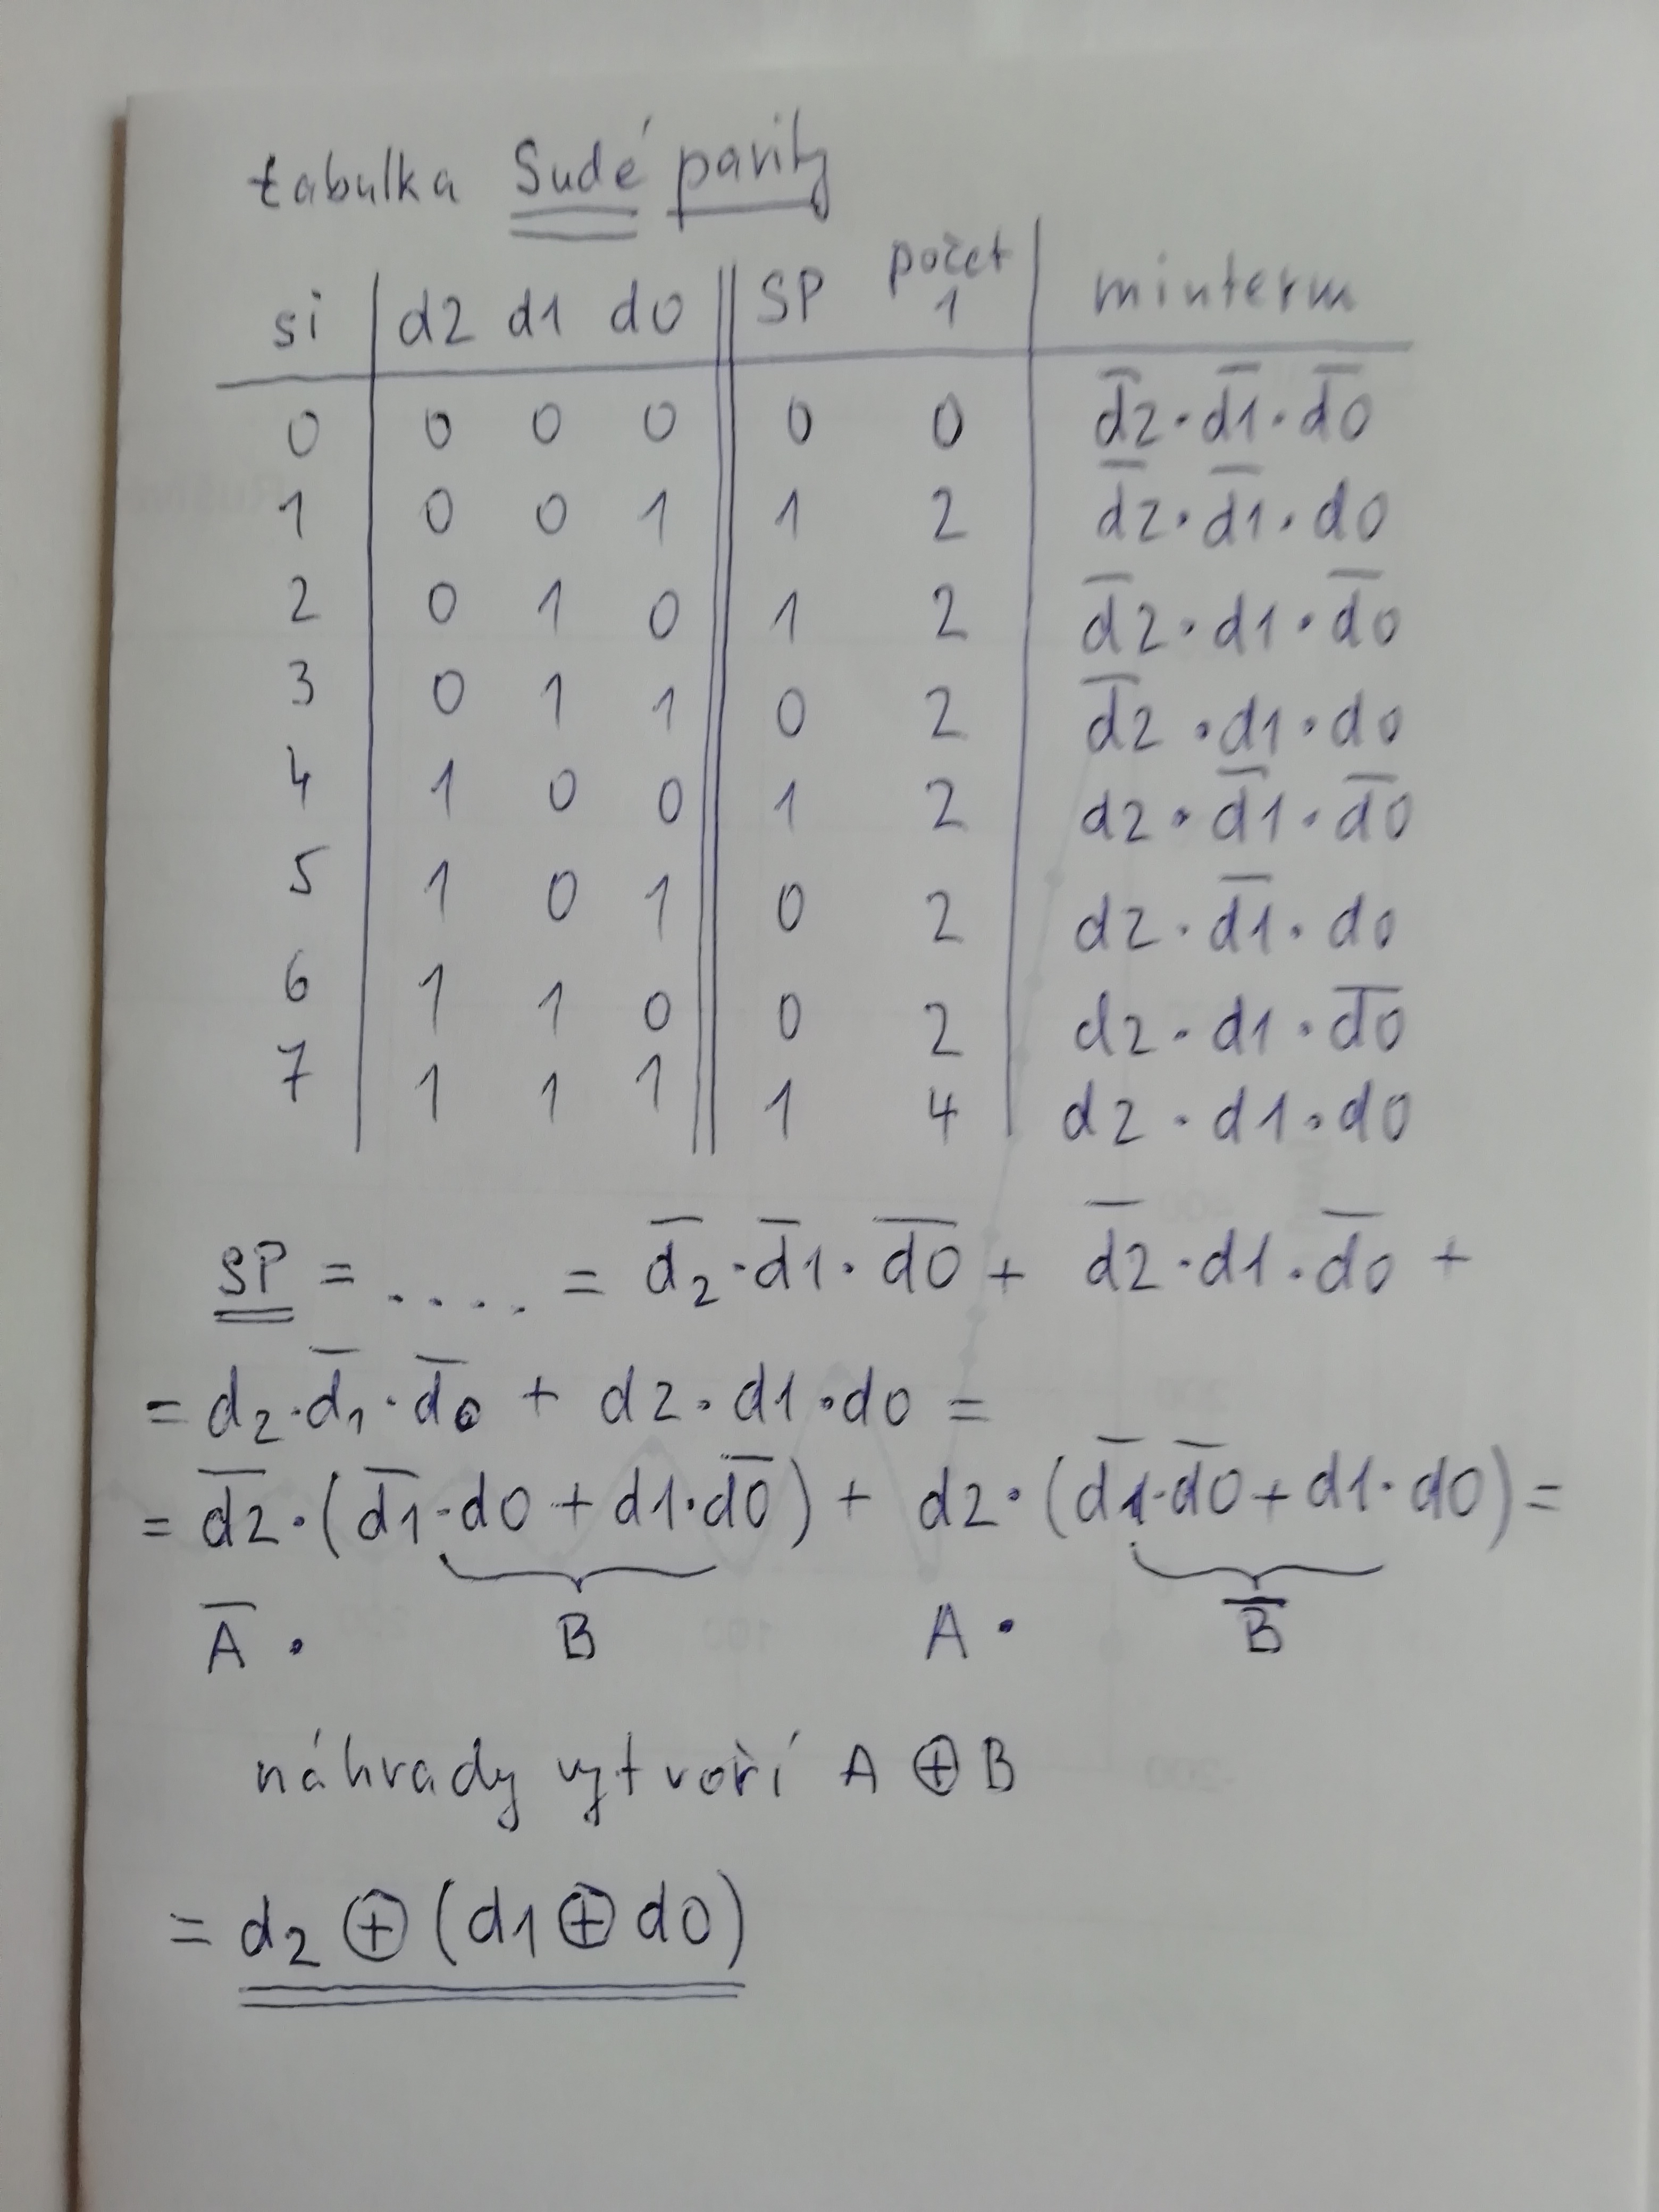 tabulka Sudé parity
si d2 d1 d0 SP počet 1 minterm
0 0 0 0 0 0 d̅2·d̅1·d̅0
1 0 0 1 1 2 d̅2·d̅1·d0
2 0 1 0 1 2 d̅2·d1·d̅0
3 0 1 1 0 2 d̅2·d1·d0
4 1 0 0 1 2 d2·d̅1·d̅0
5 1 0 1 0 2 d2·d̅1·d0
6 1 1 0 0 2 d2·d1·d̅0
7 1 1 1 1 4 d2·d1·d0
SP = ..... = d̅2·d̅1·d̅0 + d̅2·d1·d̅0 +
= d2·d̅1·d̅0 + d2·d1·d0 =
= d̅2·(d̅1·d0 + d1·d̅0) + d2·(d̅1·d̅0 + d1·d0) =
A̅ · B A · B̅
náhrady vytvoří A ⊕ B
= d2 ⊕ (d1 ⊕ d0)